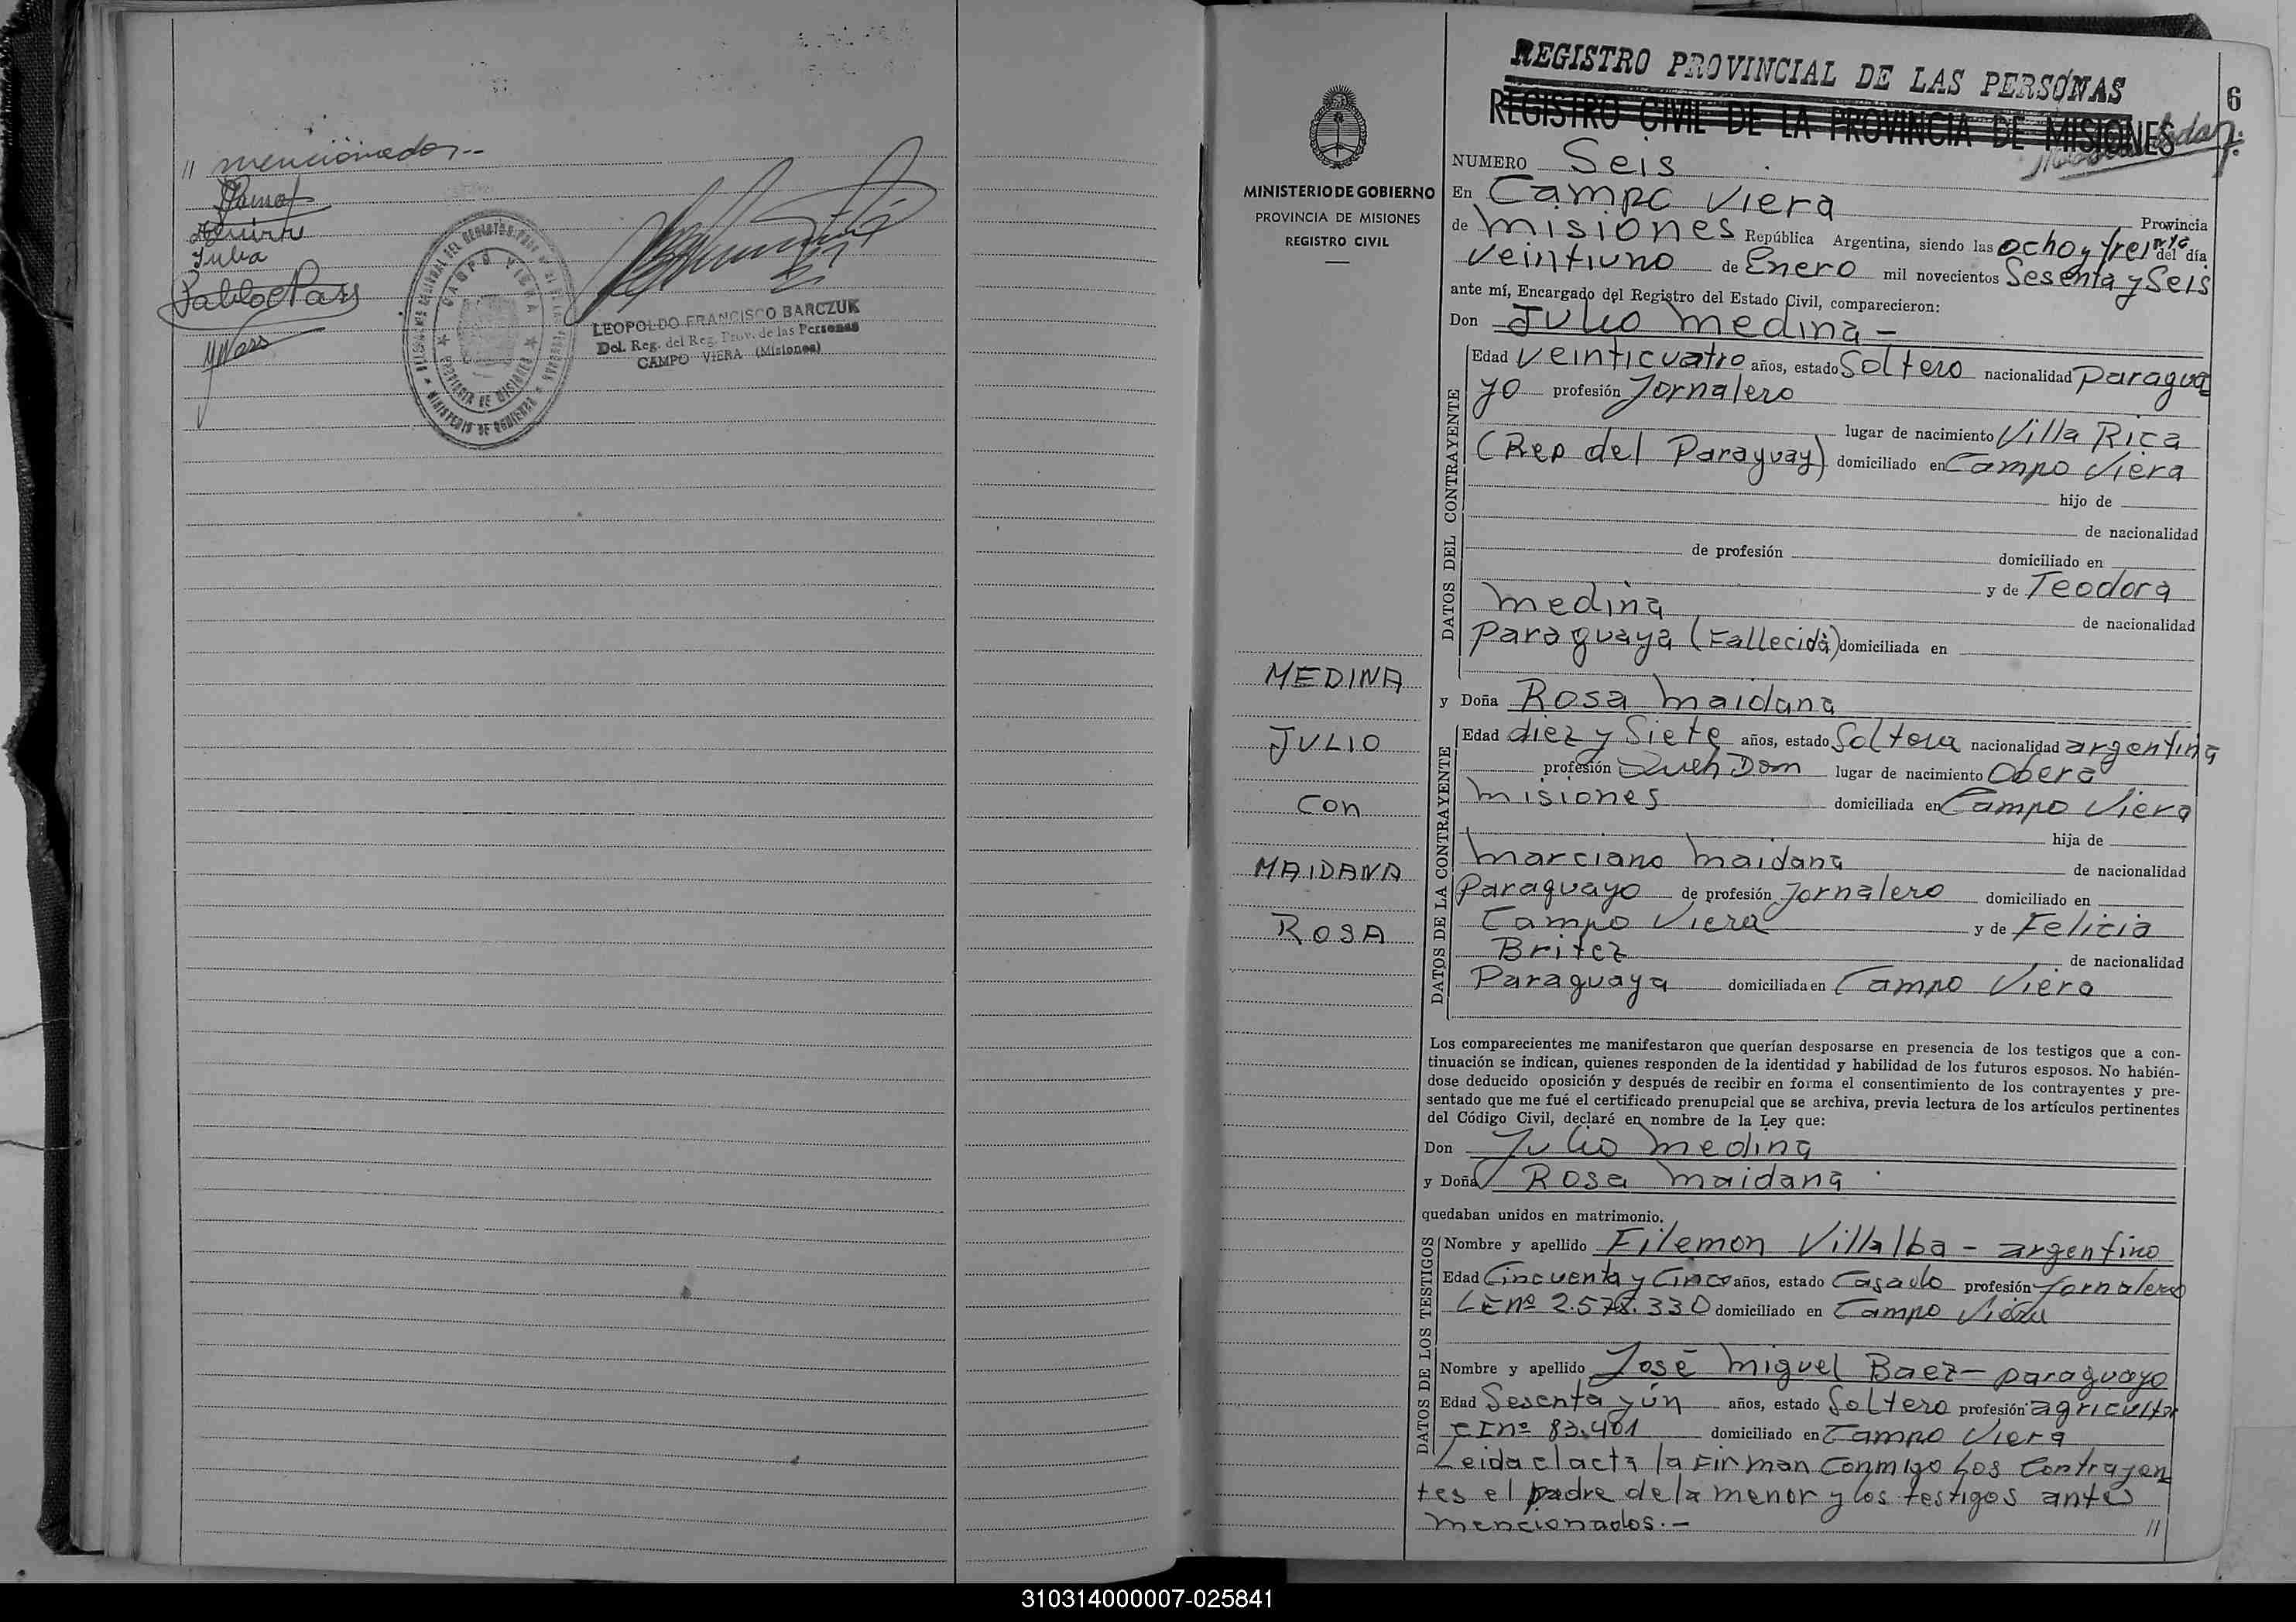 // mencionados.-
Julia
Pablo
DELEGACION REGIONAL DEL REGISTRO PROV. DE LAS PERSONAS
CAMPO VIERA
PROVINCIA DE MISIONES
MINISTERIO DE GOBIERNO
LEOPOLDO FRANCISCO BARCZUK
Del. Reg. del Reg. Prov. de las Personas
CAMPO VIERA (Misiones)
REGISTRO PROVINCIAL DE LAS PERSONAS
REGISTRO CIVIL DE LA PROVINCIA DE MISIONES
6
MINISTERIO DE GOBIERNO
PROVINCIA DE MISIONES
REGISTRO CIVIL
MEDINA
JULIO
Con
MAIDANA
ROSA
NUMERO Seis
En Campo Viera Provincia
de Misiones República Argentina, siendo las ocho y trei nta del día
Veintiuno de Enero mil novecientos Sesenta y Seis
ante mí, Encargado del Registro del Estado Civil, comparecieron:
Don Julio Medina -
DATOS DEL CONTRAYENTE
Edad Veinticuatro años, estado Soltero nacionalidad Paragua
yo profesión Jornalero
lugar de nacimiento Villa Rica
(Rep del Paraguay) domiciliado en Campo Viera
hijo de
de nacionalidad
de profesión domiciliado en
y de Teodora
Medina de nacionalidad
Paraguaya (Fallecida) domiciliada en
y Doña Rosa Maidana
DATOS DE LA CONTRAYENTE
Edad diez y Siete años, estado Soltera nacionalidad argentina
profesión Queh Dom lugar de nacimiento Obera
Misiones domiciliada en Campo Viera
hija de
Marciano Maidana de nacionalidad
Paraguayo de profesión Jornalero domiciliado en
Campo Viera y de Felicia
Britez de nacionalidad
Paraguaya domiciliada en Campo Viera
Los comparecientes me manifestaron que querían desposarse en presencia de los testigos que a con-
tinuación se indican, quienes responden de la identidad y habilidad de los futuros esposos. No habién-
dose deducido oposición y después de recibir en forma el consentimiento de los contrayentes y pre-
sentado que me fué el certificado prenupcial que se archiva, previa lectura de los artículos pertinentes
del Código Civil, declaré en nombre de la Ley que:
Don Julio Medina
y Doña Rosa Maidana
quedaban unidos en matrimonio.
DATOS DE LOS TESTIGOS
Nombre y apellido Filemon Villalba - argentino
Edad Cincuenta y Cinco años, estado Casado profesión Jornalero
LE nº 2.578.330 domiciliado en Campo Viera
Nombre y apellido José Miguel Baez - paraguayo
Edad Sesenta y ún años, estado Soltero profesión agricultor
CI nº 83.401 domiciliado en Campo Viera
Leida el acta la Firman Conmigo Los Contrayen
tes el padre de la menor y los testigos antes
mencionados.- //
310314000007-025841